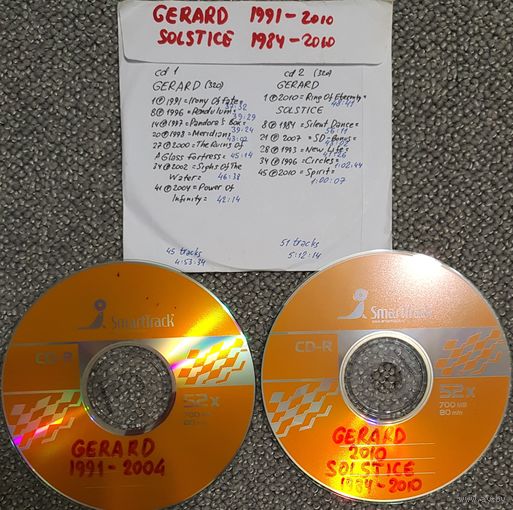 GERARD 1991-2010
SOLSTICE 1984-2010
cd 1
GERARD (320)
1 ℗ 1991 = Irony Of Fate =
8 ℗ 1996 = Pendulum =
39:29
14 ℗ 1997 = Pandora's Box =
39:24
20 ℗ 1998 = Meridian =
43:02
27 ℗ 2000 = The Ruins Of
A Glass Fortress = 45:14
34 ℗ 2002 = Sighs Of The
Water = 46:38
41 ℗ 2004 = Power Of
Infinity = 42:14
45 tracks
4:53:34
cd 2 (320)
GERARD
1 ℗ 2010 = Ring Of Eternity =
48:41
SOLSTICE
8 ℗ 1984 = Silent Dance =
56:11
21 ℗ 2007 = SD-Bonus =
28 ℗ 1993 = New Life =
34 ℗ 1996 = Circles =
1:02:44
45 ℗ 2010 = Spirit =
1:00:07
51 tracks
5:12:14
SmartTrack
CD-R
52x
700 MB
80 min
GERARD
1991-2004
SmartTrack
CD-R
52x
700 MB
80 min
GERARD
2010
SOLSTICE
1984-2010